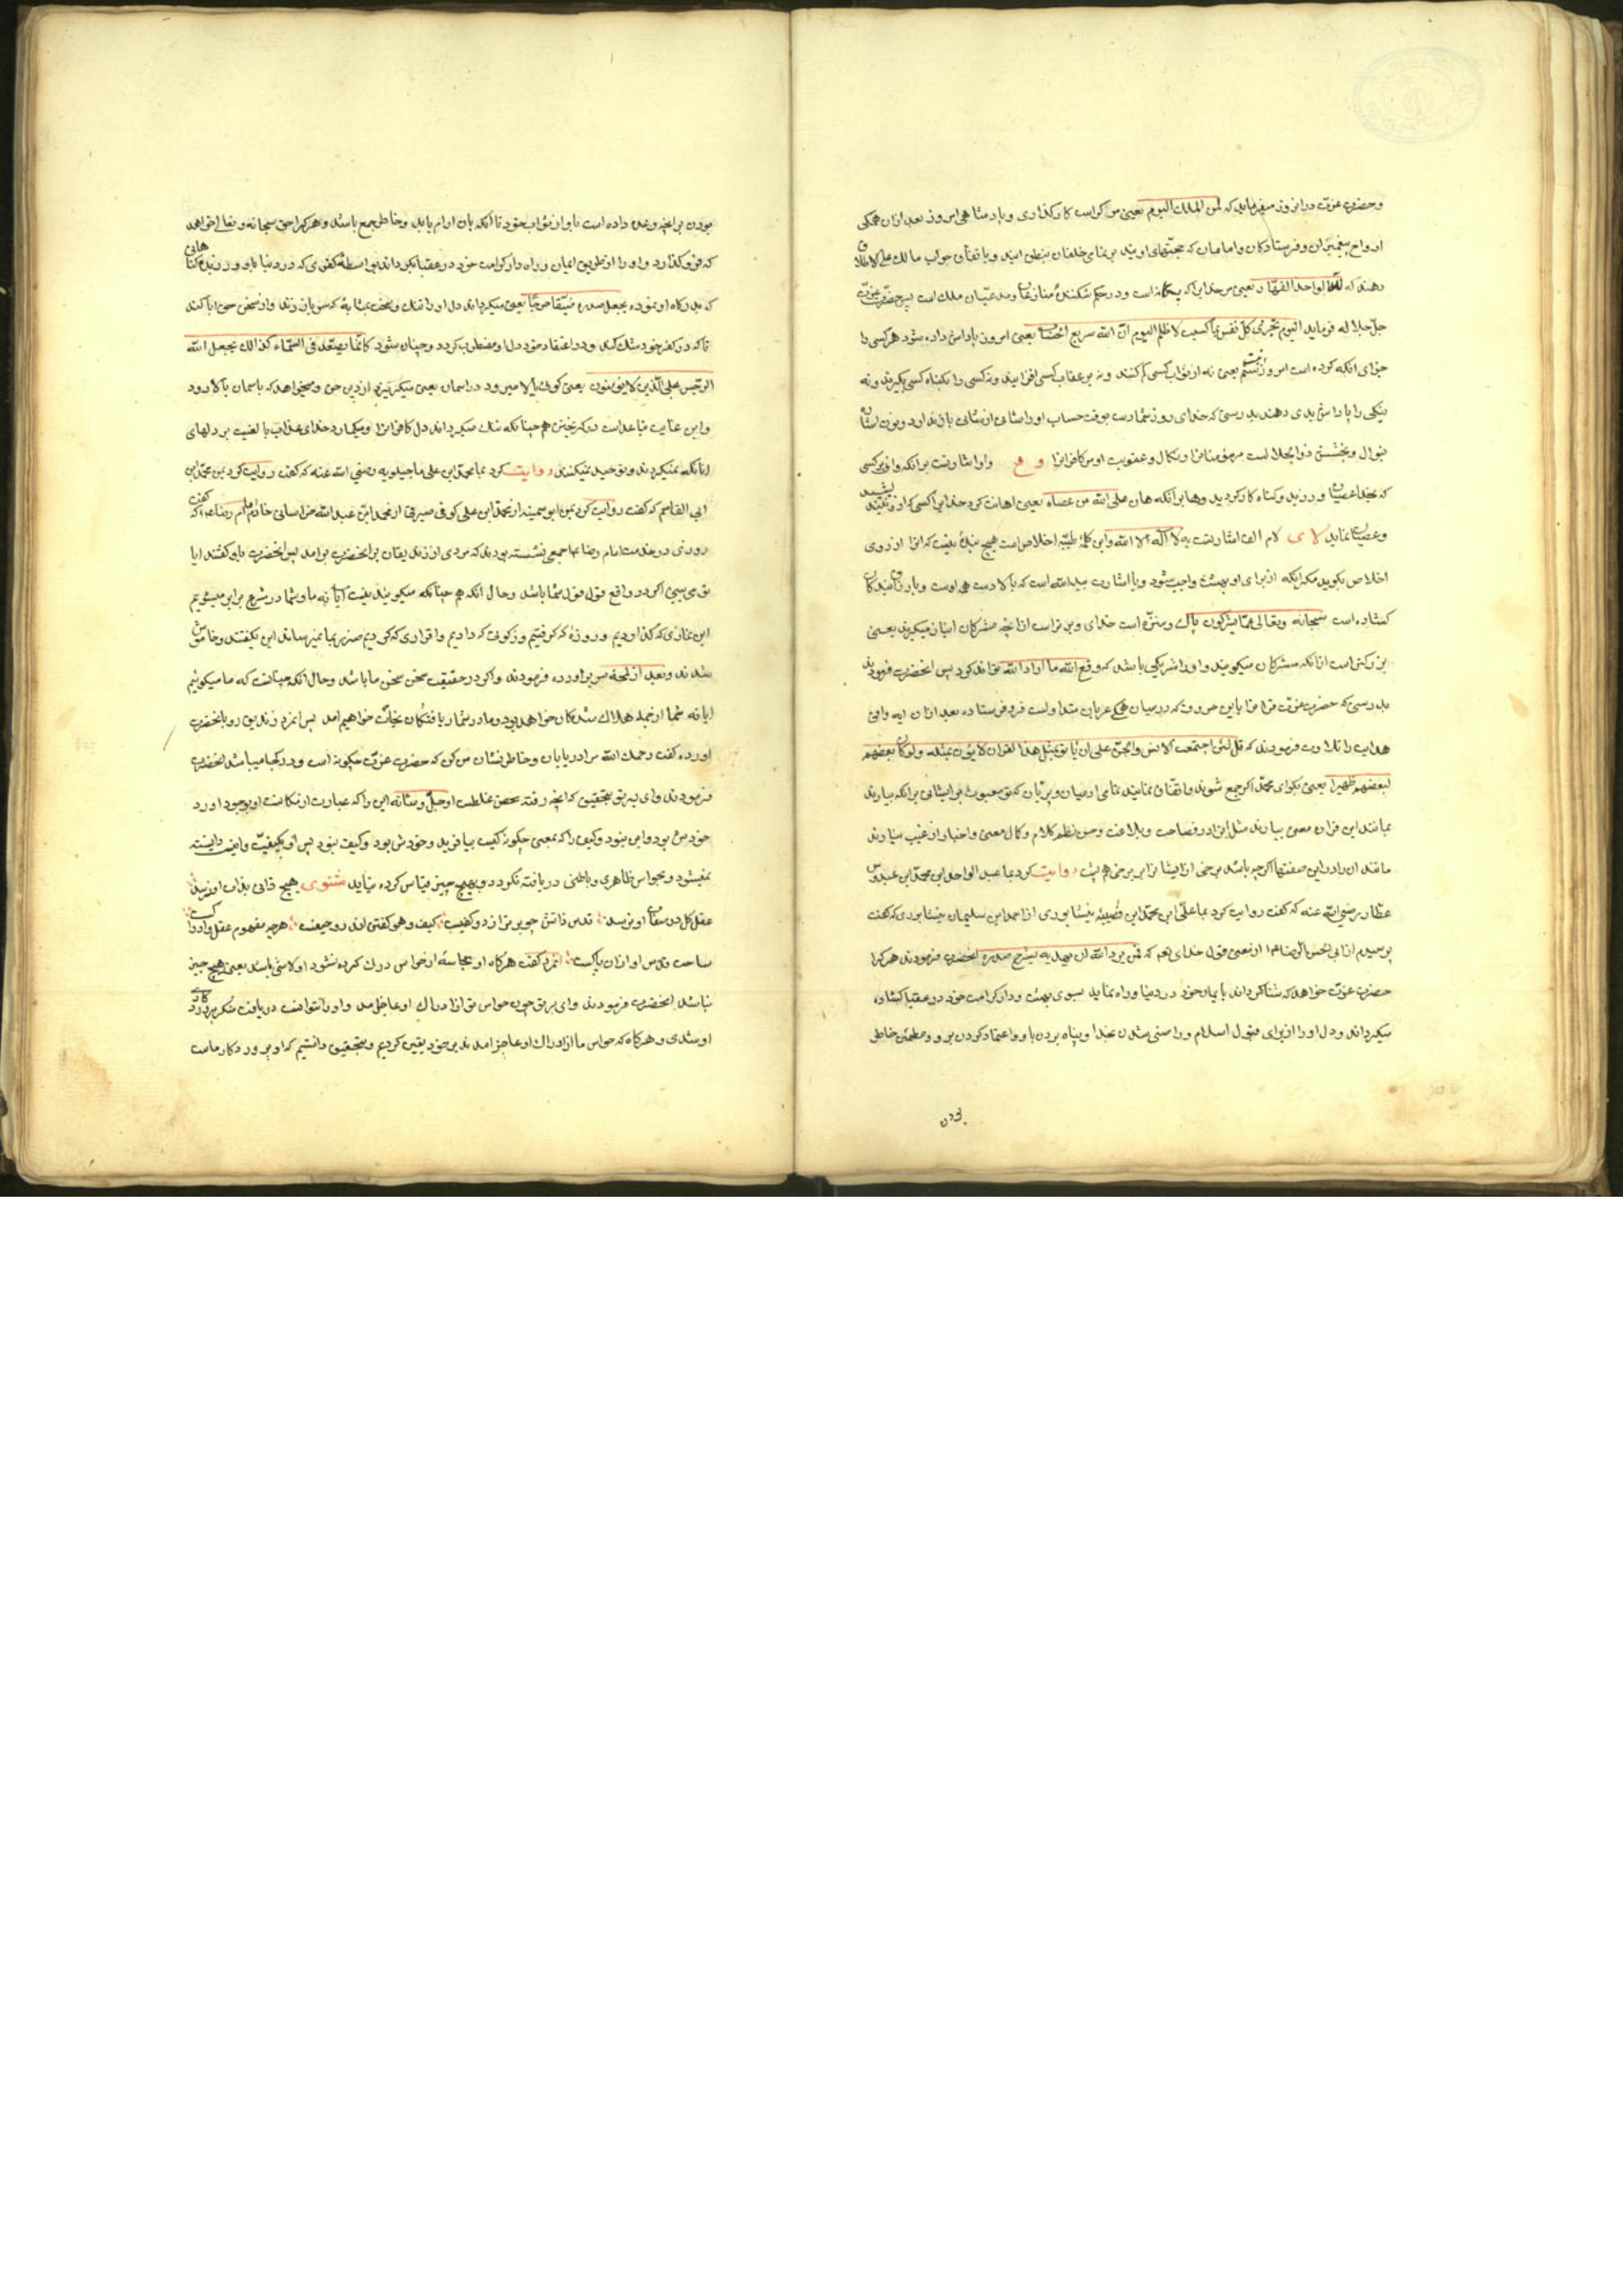 وحضرت عزت در انروز میفرماید که لمن الملک الیوم یعنی مر کراست کارکذاری و پادشاهی امروز بعد ازان همکی
ارواح پیغمبران و فرستادکان و امامان که حجتهای اویند بر تمامی خلقان بنطق ایند و باتفاق جواب مالک علی الاطلاق
دهند که لله الواحد القهار یعنی مر خدایرا که یکتاست و در حکم شکنندهٔ منازعان و مدعیان ملک است پس حضرت عزت
جل جلاله فرماید الیوم تجزی کل نفس بما کسبت لا ظلم الیوم ان الله سریع الحساب یعنی امروز پاداش داده شود هر کسی را
جزای انکه کرده است امروز ستم نیست یعنی نه از ثواب کسی کم کنند و نه بر عقاب کسی افزایند و نه کسی را بکناه کسی بکیرند و نه
نیکی را پاداش بدی دهند بدرستی که خدای زود شمارست بوقت حساب او را شانی از شانی باز ندارد و نون اشارت
بنوال و بخشش ذو الجلال است مر مؤمنانرا و نکال و عقوبت او مر کافرانرا و ه واو اشارتست برانکه وای بر کسی
که بخدا عصیان ورزید و کناه کار کردید وها برانکه هان علی الله من عصاه یعنی اهانت کرد خدایرا کسی که ازو نترسید
وعصیان نماید لا ی لام الف اشارتست به لا اله الا الله و این کلمهٔ طیبه اخلاص است هیچ بندهٔ نیست که انرا از روی
اخلاص بکوید مکر انکه از برای او بهشت واجب شود و یا اشارت بید الله است که بالا دست همه اوست و بارزاق بندکان
کشاده است سبحانه وتعالی عما یشرکون پاک و منزه است خدای و برتر است از انچه مشرکان انباز میکیرند یعنی
بزرکتر است از انکه مشرکان میکویند و او را شریکی باشد که دفع الله ما اراد الله تواند کرد پس انحضرت فرمودند
بدرستی که حضرت عزت قرانرا باین حروف که در میان همکی عربان متداولست فرو فرستاده بعد ازان ایه وافی
هدایت را تلاوت فرمودند که قل لئن اجتمعت الانس والجن علی ان یأتوا بمثل هذا القران لا یأتون بمثله ولو کان بعضهم
لبعضهم ظهیرا یعنی بکو ای محمد اکر جمع شوند و اتفاق نمایند تمامی ادمیان و پریان که تو مبعوث بر ایشانی برانکه بیارند
بمانند این قران معنی بیارند مثل انرا در فصاحت و بلاغت و حسن نظم کلام و کمال معنی و اخبار از غیب نیارند
مانند ان را در این صفتها اکرچه باشند برخی از ایشانرا بر برخی هم پشت روایت کرد بما عبد الواحد ابن محمد ابن عبدوس
عطار رضی الله عنه که کفت روایت کرد بما علی ابن محمد ابن قتیبه نیشابوری از احمد ابن سلیمان نیشابوری که کفت
پرسیدم از ابی الحسن الرضا از معنی قول خدای تعم که فمن یرد الله ان یهدیه یشرح صدره انحضرت فرمودند هر کرا
حضرت عزت خواهد که شناکرداند بایمان خود در دنیا و راه نماید بسوی بهشت و دار کرامت خود در عقبا کشاده
میکرداند و دل او را از برای قبول اسلام و راضی شدن بخدا و پناه بردن باو و اعتماد کردن برو و مطمئن خاطر
بودن
بودن بر انچه وعده داده است باو از ثواب خود تا انکه بان ارام یابد و خاطر جمع باشد و هر کرا حق سبحانه وتعالی خواهد
که فرو کذارد و او را از طریق ایمان و راه دار کرامت خود در عقبا بکرداند بواسطهٔ کفری که در دنیا باو ورزید و کناهانی
که بدرکاه او نموده یجعل صدره ضیقا حرجا یعنی میکرداند دل او را تنک و سخت بمثابهٔ که سر باز زند و از سخن حق ابا کند
تا که در کفر خود شک کند و در اعتقاد خود دل او مضطرب کردد و چنان شود کانما یصعد فی السماء کذالک یجعل الله
الرجس علی الذین لا یؤمنون یعنی کوئی بالا میرود در اسمان یعنی میکریزد از دین حق و میخواهد که باسمان بالا رود
و این غایت تباعد است و کریختن همچنانکه تنک میکرداند دل کافرانرا و میکمارد خدای عذاب یا لعنت بر دلهای
انانکه نمیکروند و توحید نمیکنند روایت کرد بما محمد ابن علی ماجیلویه رضی الله عنه که کفت روایت کرد بمن محمد ابن
ابی القاسم که کفت روایت کرد بمن ابو سمینه از محمد ابن علی کوفی صیرفی از محمد ابن عبد الله خراسانی خادم امام رضا که کفت
روزی در خدمت امام رضا جمعی نشسته بودند که مردی از زندیقان بر انحضرت برامد پس انحضرت باو کفتند ایا
تو می بینی اکر در واقع قول قول شما باشد و حال انکه هم چنانکه میکویند نیست ایا نه ما و شما در شرع برابر میشویم
این نمازی که کذاردیم و روزهٔ که کرفتیم و زکوتی که دادیم و اقراری که کردیم ضرر بما نمیرساند این بکفتند و خاموش
شدند و بعد از لمحهٔ سر براورده فرمودند و اکر در حقیقت سخن سخن ما باشد و حال انکه چنانست که ما میکوئیم
ایا نه شما از جمله هلاک شدکان خواهید بود و ما در شمار یافتکان نجات خواهیم امد پس انمرد زندیق رو بانحضرت
اورده کفت رحمک الله مرا دریابان و خاطر نشان من کن که حضرت عزت چکونه است و در کجا میباشد انحضرت
فرمودند وای بر تو بتحقیق که انچه رفته محض غلطست او جل وشانه این را که عبارت از مکانست او بوجود اورد
خودش بود و این نبود و کیف را که بمعنی چکونه کیف بیافرید و خودش بود و کیف نبود پس او بکیفیت و اینیت دانسته
نمیشود و بحواس ظاهری و باطنی دریافته نکردد و بهیچ چیز قیاس کرده نیاید مثنوی هیچ ذاتی بذات او نرسد
عقل کل در صفات او نرسد قدس ذاتش چو برتر از دو کفیست کیف وهو کفتن اندرو حیفست هرچه مفهوم عقل و ادراکست
ساحت قدس او ازان پاکست انمرد کفت هرکاه او بحاسهٔ از حواس درک کرده نشود او لا شئ باشد یعنی هیچ چیز
نباشد انحضرت فرمودند وای بر تو چون حواس تو از ادراک او عاجز امد و او را نتوانست دریافت منکر پروردکاری
او شدی و هرکاه که حواس ما از ادراک او عاجز امد بر خود یقین کردیم و بتحقیق دانستیم که او پروردکار ماست